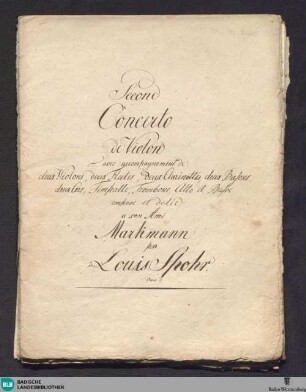 Second
Concerto
de Violon
avec accompagnement de
deux Violons, deux Flutes, Deux Clarinettes, deux Bassons
deux Cors, Timpalle, Trombone, Alto et Basse
composé et dedié
a son Ami
Markmann
par
Louis Spohr.
BLB
BADISCHE
LANDESBIBLIOTHEK
Baden-Württemberg